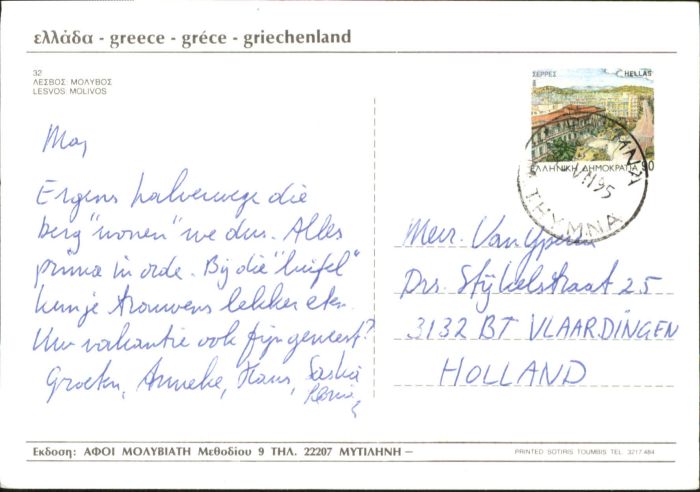 ελλάδα - greece - gréce - griechenland
32
ΛΕΣΒΟΣ ΜΟΛΥΒΟΣ
LESVOS MOLIVOS
ΣΕΡΡΕΣ HELLAS
ΕΛΛΗΝΙΚΗ ΔΗΜΟΚΡΑΤΙΑ 90
THYMNA
Ergens halverwege die
berg "wonen" we dus. Alles
prima in orde. Bij die "luifel"
kun je trouwens lekker eten.
Uw vakantie ook fijn geweest?
Groeten, Anneke, Hans, Saskia
Mevr. Van Yperen
Drs. Stijkelstraat 25
3132 BT VLAARDINGEN
HOLLAND
Εκδοση: ΑΦΟΙ ΜΟΛΥΒΙΑΤΗ Μεθοδίου 9 ΤΗΛ. 22207 ΜΥΤΙΛΗΝΗ —
PRINTED SOTIRIS TOUMBIS TEL. 3217.484